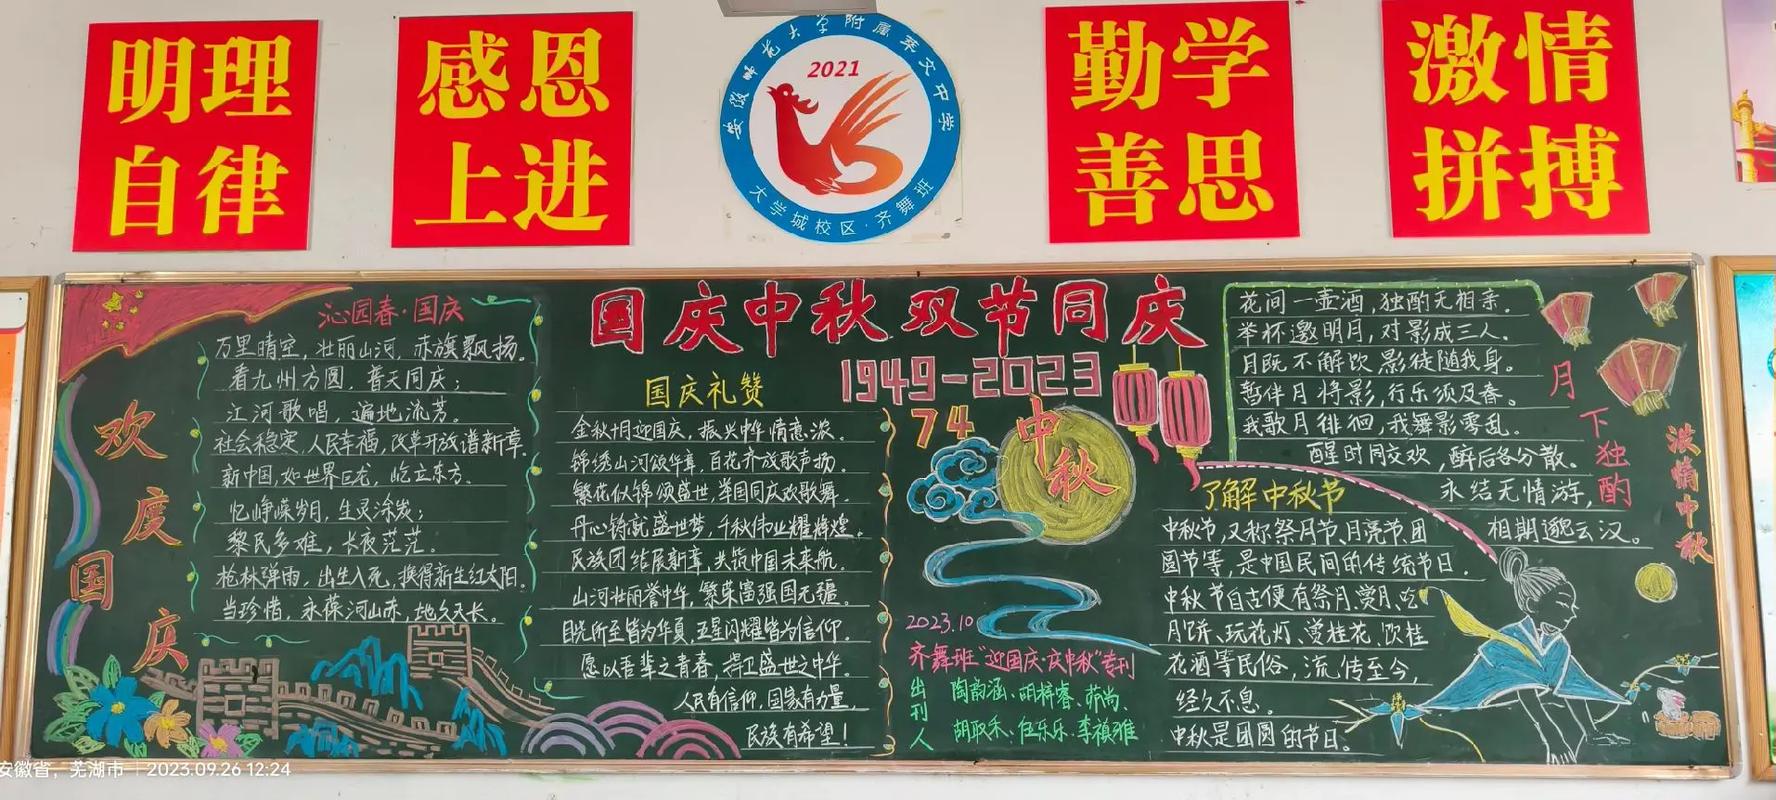 明理
自律
感恩
上进
安徽师范大学附属萃文中学
2021
大学城校区·齐舞班
勤学
善思
激情
拼搏
国庆中秋双节同庆
1949-2023
74
中秋
欢度国庆
沁园春·国庆
万里晴空，壮丽山河，赤旗飘扬。
看九州方圆，普天同庆；
江河歌唱，遍地流芳。
社会稳定，人民幸福，改革开放谱新章。
新中国，如世界巨龙，屹立东方。
忆峥嵘岁月，生灵涂炭；
黎民多难，长夜茫茫。
枪林弹雨，出生入死，换得新生红太阳。
当珍惜，永葆河山赤，地久天长。
国庆礼赞
金秋十月迎国庆，振兴中华情意浓。
锦绣山河颂华章，百花齐放歌声扬。
繁花似锦颂盛世，举国同庆欢歌舞。
丹心铸就盛世梦，千秋伟业耀辉煌。
民族团结展新章，共筑中国未来航。
山河壮丽誉中华，繁荣富强国无疆。
目光所至皆为华夏，五星闪耀皆为信仰。
愿以吾辈之青春，捍卫盛世之中华。
人民有信仰，国家有力量，
民族有希望！
2023.10
齐舞班“迎国庆·庆中秋”专刊
出刊人
陶韵涵、胡梓睿、
胡取禾、伍乐乐、李祯雅
月下独酌
花间一壶酒，独酌无相亲。
举杯邀明月，对影成三人。
月既不解饮，影徒随我身。
暂伴月将影，行乐须及春。
我歌月徘徊，我舞影零乱。
醒时同交欢，醉后各分散。
永结无情游，
相期邈云汉。
了解中秋节
中秋节，又称祭月节、月亮节、团
圆节等，是中国民间的传统节日。
中秋节自古便有祭月、赏月、吃
月饼、玩花灯、赏桂花、饮桂
花酒等民俗，流传至今，
经久不息。
中秋是团圆的节日。
浓情中秋
安徽省，芜湖市 | 2023.09.26 12:24